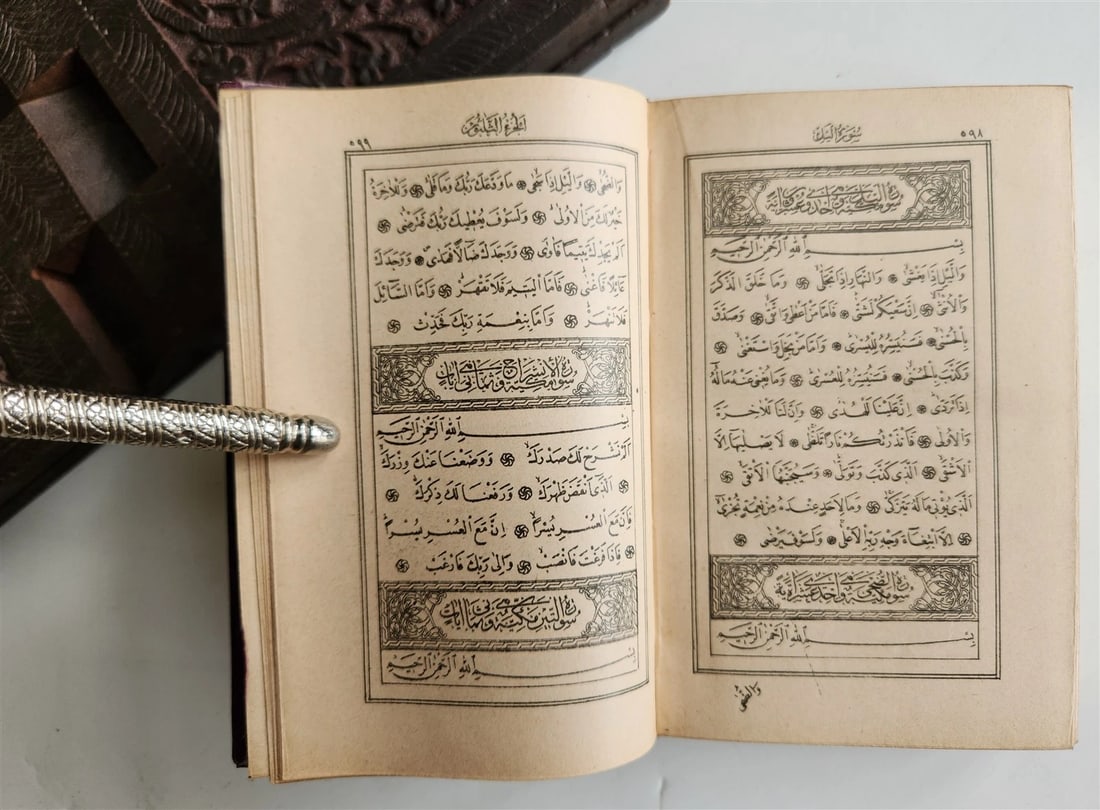 ٥٩٨ سورة الليل
سورة الليل مكية وهى احدى وعشرون آية
بِسْمِ اللهِ الرَّحْمٰنِ الرَّحِيمِ
وَالَّيْلِ اِذَا يَغْشٰى وَالنَّهَارِ اِذَا تَجَلّٰى وَمَا خَلَقَ الذَّكَرَ
وَالْاُنْثٰى اِنَّ سَعْيَكُمْ لَشَتّٰى فَاَمَّا مَنْ اَعْطٰى وَاتَّقٰى وَصَدَّقَ
بِالْحُسْنٰى فَسَنُيَسِّرُهُ لِلْيُسْرٰى وَاَمَّا مَنْ بَخِلَ وَاسْتَغْنٰى
وَكَذَّبَ بِالْحُسْنٰى فَسَنُيَسِّرُهُ لِلْعُسْرٰى وَمَا يُغْنٖى عَنْهُ مَالُهُ
اِذَا تَرَدّٰى اِنَّ عَلَيْنَا لَلْهُدٰى وَاِنَّ لَنَا لَلْاٰخِرَةَ
وَالْاُولٰى فَاَنْذَرْتُكُمْ نَارًا تَلَظّٰى لَا يَصْلٰيهَا اِلَّا
الْاَشْقٰى اَلَّذٖى كَذَّبَ وَتَوَلّٰى وَسَيُجَنَّبُهَا الْاَتْقٰى
اَلَّذٖى يُؤْتٖى مَالَهُ يَتَزَكّٰى وَمَا لِاَحَدٍ عِنْدَهُ مِنْ نِعْمَةٍ تُجْزٰى
اِلَّا ابْتِغَاءَ وَجْهِ رَبِّهِ الْاَعْلٰى وَلَسَوْفَ يَرْضٰى
سورة الضحى مكية وهى احدى عشرة آية
بِسْمِ اللهِ الرَّحْمٰنِ الرَّحِيمِ
وَالضُّحٰى
الجزء الثلثون ٥٩٩
وَالضُّحٰى وَالَّيْلِ اِذَا سَجٰى مَا وَدَّعَكَ رَبُّكَ وَمَا قَلٰى وَلَلْاٰخِرَةُ
خَيْرٌ لَكَ مِنَ الْاُولٰى وَلَسَوْفَ يُعْطِيكَ رَبُّكَ فَتَرْضٰى
اَلَمْ يَجِدْكَ يَتِيمًا فَاٰوٰى وَوَجَدَكَ ضَالًّا فَهَدٰى وَوَجَدَكَ
عَائِلًا فَاَغْنٰى فَاَمَّا الْيَتِيمَ فَلَا تَقْهَرْ وَاَمَّا السَّائِلَ
فَلَا تَنْهَرْ وَاَمَّا بِنِعْمَةِ رَبِّكَ فَحَدِّثْ
سورة الانشراح مكية وهى ثمانى آيات
بِسْمِ اللهِ الرَّحْمٰنِ الرَّحِيمِ
اَلَمْ نَشْرَحْ لَكَ صَدْرَكَ وَوَضَعْنَا عَنْكَ وِزْرَكَ
اَلَّذٖى اَنْقَضَ ظَهْرَكَ وَرَفَعْنَا لَكَ ذِكْرَكَ
فَاِنَّ مَعَ الْعُسْرِ يُسْرًا اِنَّ مَعَ الْعُسْرِ يُسْرًا
فَاِذَا فَرَغْتَ فَانْصَبْ وَاِلٰى رَبِّكَ فَارْغَبْ
سورة التين مكية وهى ثمانى آيات
بِسْمِ اللهِ الرَّحْمٰنِ الرَّحِيمِ